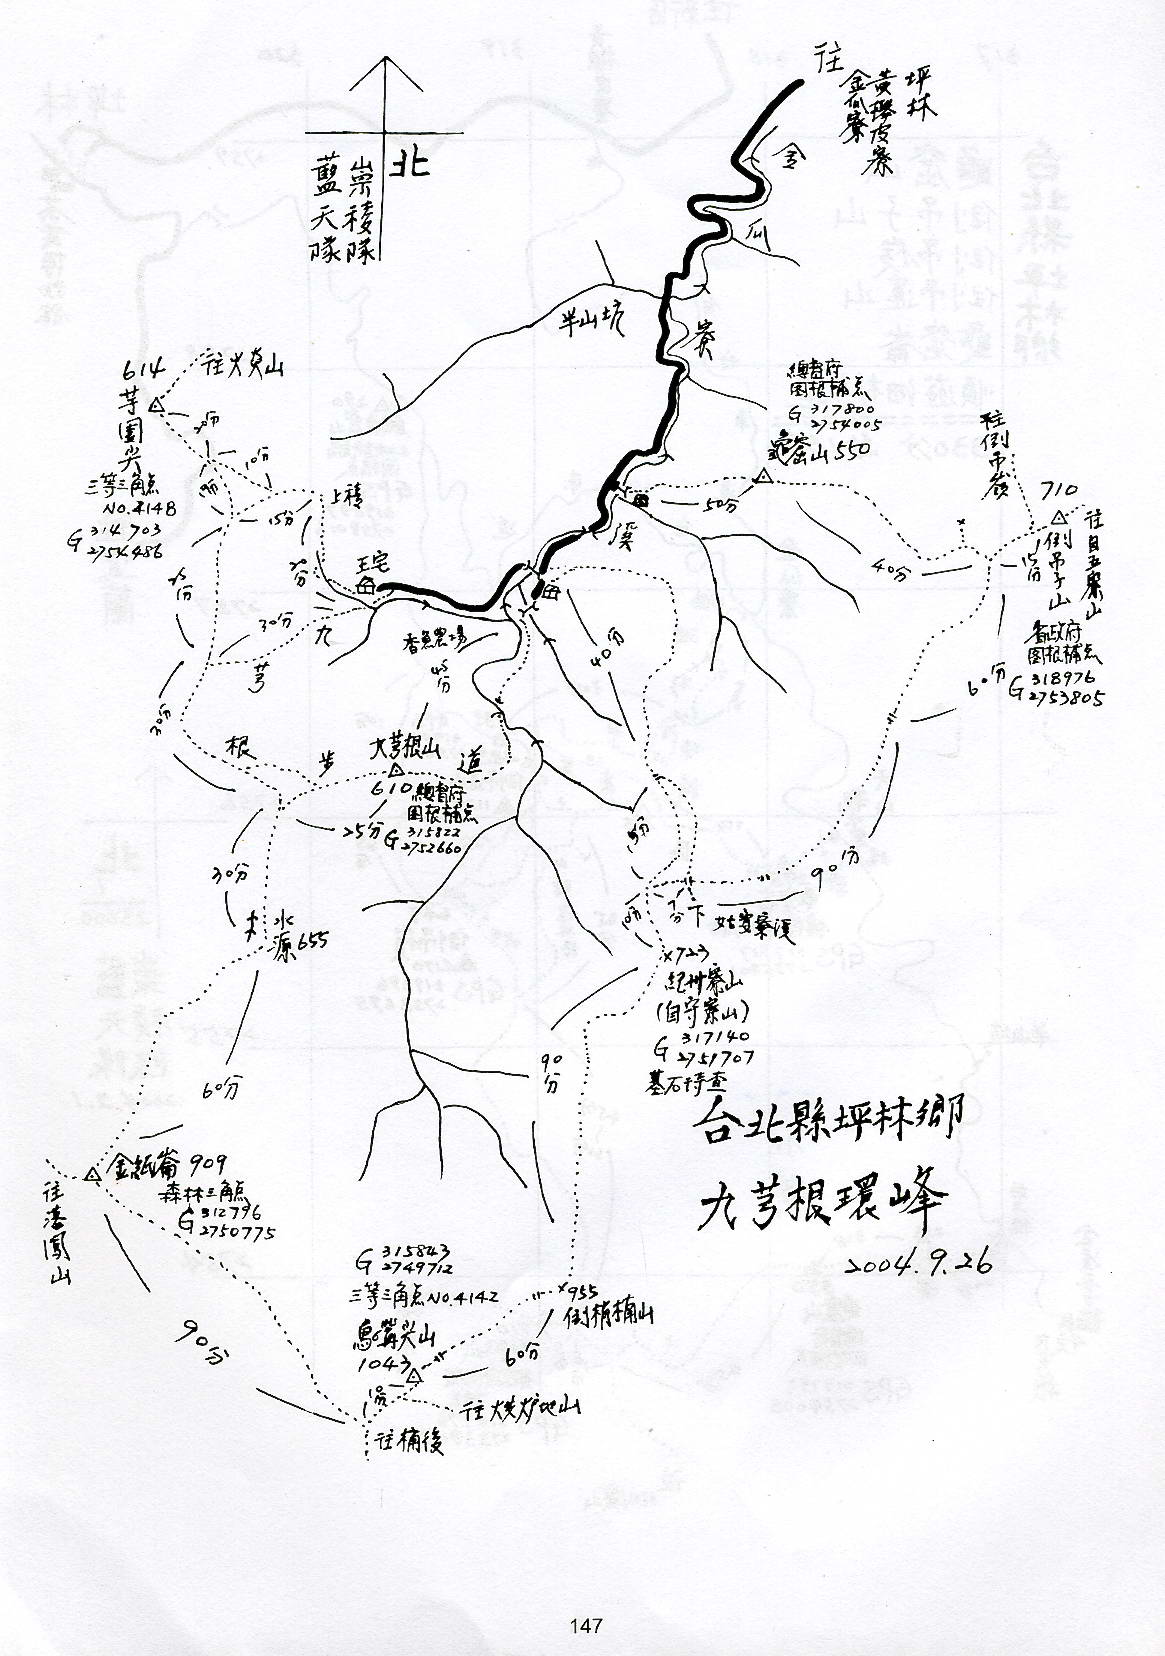 往
坪林
黃櫸皮寮
金瓜寮
北
崇稜隊
藍天隊
金
瓜
寮
溪
半山坑
614
芋園尖
三等三角点
NO.4148
G 314703
2754486
20分
10分
15分
上稜
總督府
圖根補点
G 317800
2754005
龜窑山 550
50分
往倒吊嶺
710
倒吊子山
40分
15分
省政府
圖根補点
G 318976
2753805
60分
王宅
30分
九
芎
根
步
道
香魚農場
45分
40分
30分
大芎根山
610
總督府
圖根補点
G 315822
2752660
25分
30分
水源 655
15分
10分
90分
下
姑婆寮溪
x723
紀州寮山
(自守寮山)
G 317140
2751707
基石待查
90分
60分
金紙崙 909
森林三角点
G 312796
2750775
90分
台北縣坪林鄉
九芎根環峰
2004.9.26
G 315843
2749712
三等三角点NO.4142
烏嘴尖山
1043
x955
倒梢桷山
60分
10分
往桶後
147